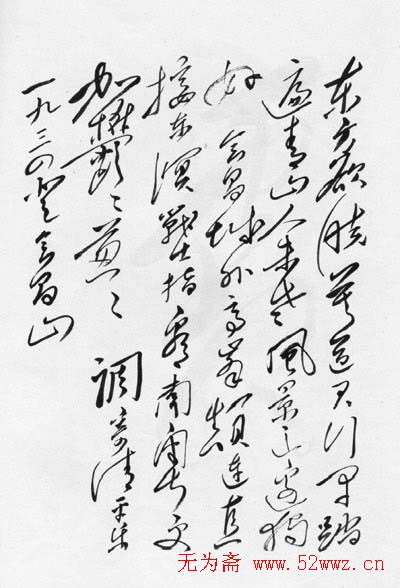 东方欲晓莫道君行早踏
遍青山人未老風景这边独
好 会昌城外高峯颠連直
接东溟戰士指看南粤更
加欝〻葱〻 調寄清平乐
一九三四登会昌山
无为斋 www.52wwz.cn